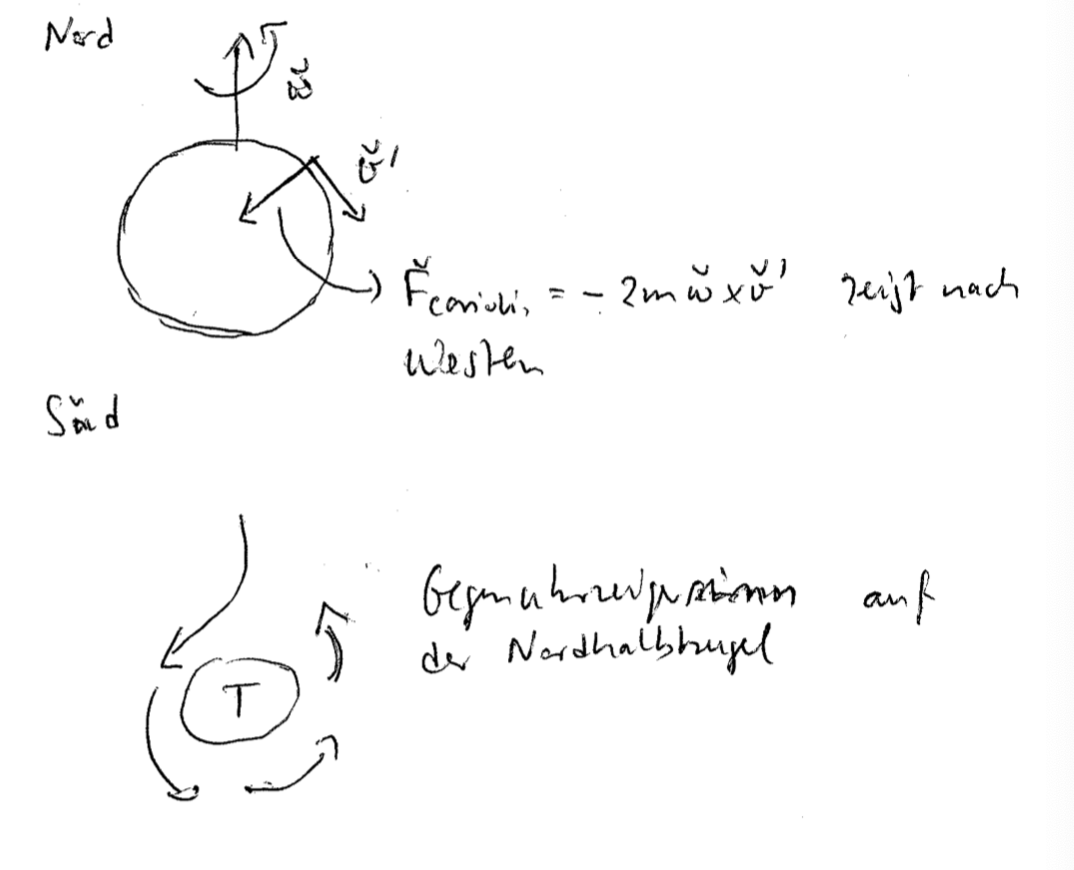 Nord
ω⃗
v⃗'
F⃗coriolis = - 2m ω⃗ x v⃗' zeigt nach
Westen
Süd
T
Gegenuhrzeigersinn auf
der Nordhalbkugel